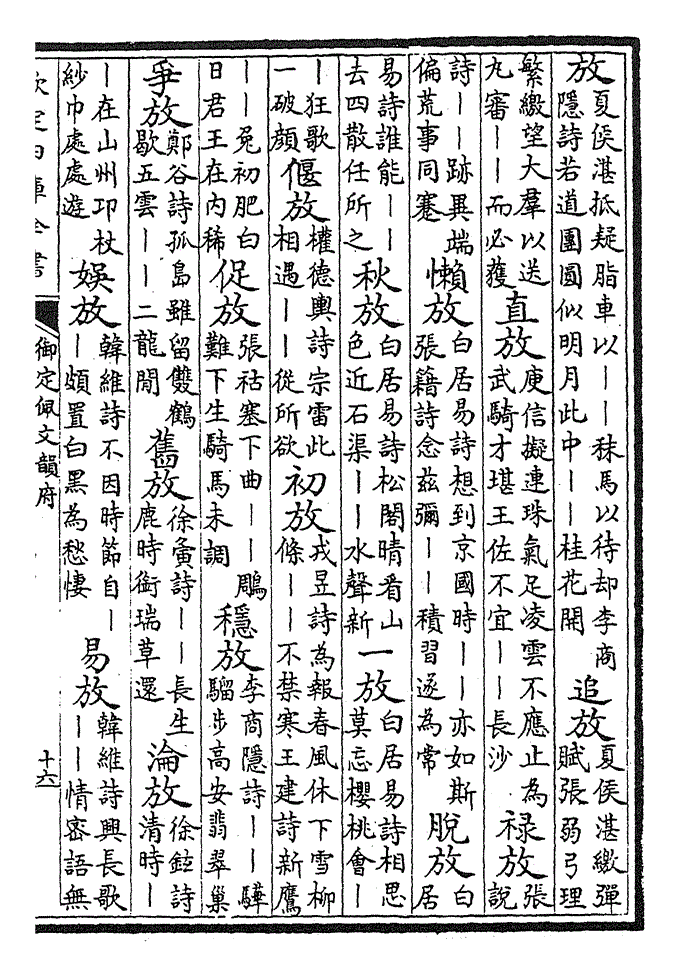 放夏侯湛抵疑脂車以——秣馬以待却李商隱詩若道團圓似明月此中——桂花開 追放夏侯湛繳彈賦張弱弓理
繁繳望大羣以送九審——而必獲 直放庾信擬連珠氣足凌雲不應止為武騎才堪王佐不宜——長沙 祿放張說
詩——跡異端偏荒事同蹇 懶放白居易詩想到京國時——亦如斯張籍詩念兹彌——積習遂為常 脫放白居
易詩誰能——去四散任所之 秋放白居易詩松閣晴看山色近石渠——水聲新 一放白居易詩相思莫忘櫻桃會—
—狂歌一破顔 偃放權德輿詩宗雷此相遇——從所欲 初放戎昱詩為報春風休下雪柳條——不禁寒王建詩新鷹
——兔初肥白日君王在内稀 促放張祜塞下曲——鵰難下生騎馬未調 穩放李商隱詩——驊騮步高安翡翠巢
爭放鄭谷詩孤島雖留雙鶴歇五雲——二龍閒 舊放徐夤詩——長生鹿時銜瑞草還 淪放徐鉉詩清時—
—在山州卭杖紗巾處處遊 娛放韓維詩不因時節自——頗置白黑為愁悽 易放韓維詩興長歌——情密語無
欽定四庫全書
御定佩文韻府
十六